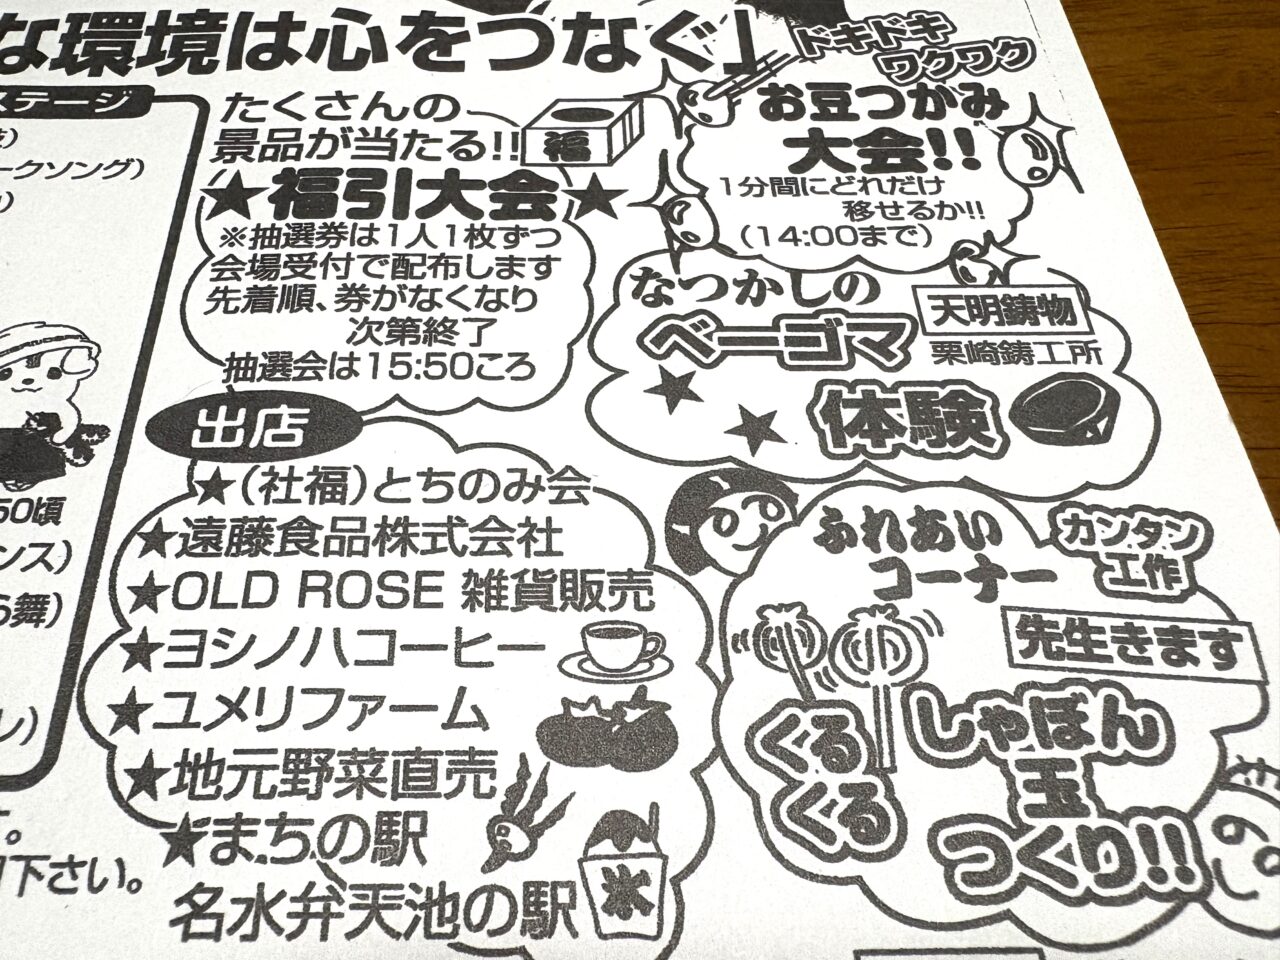 な環境は心をつなぐ」
ステージ
ークソング)
50頃
ンス)
ら舞)
レ)
す。
下さい。
たくさんの
景品が当たる!!
福
★福引大会★
※抽選券は1人1枚ずつ
会場受付で配布します
先着順、券がなくなり
次第終了
抽選会は15:50ころ
ドキドキ
ワクワク
お豆つかみ
大会!!
1分間にどれだけ
移せるか!!
(14:00まで)
なつかしの
ベーゴマ
体験
天明鋳物
栗崎鋳工所
出店
★(社福)とちのみ会
★遠藤食品株式会社
★OLD ROSE 雑貨販売
★ヨシノハコーヒー
★ユメリファーム
★地元野菜直売
★まちの駅
名水弁天池の駅
氷
ふれあい
コーナー
カンタン
工作
先生きます
くるくる
しゃぼん
玉
つくり!!